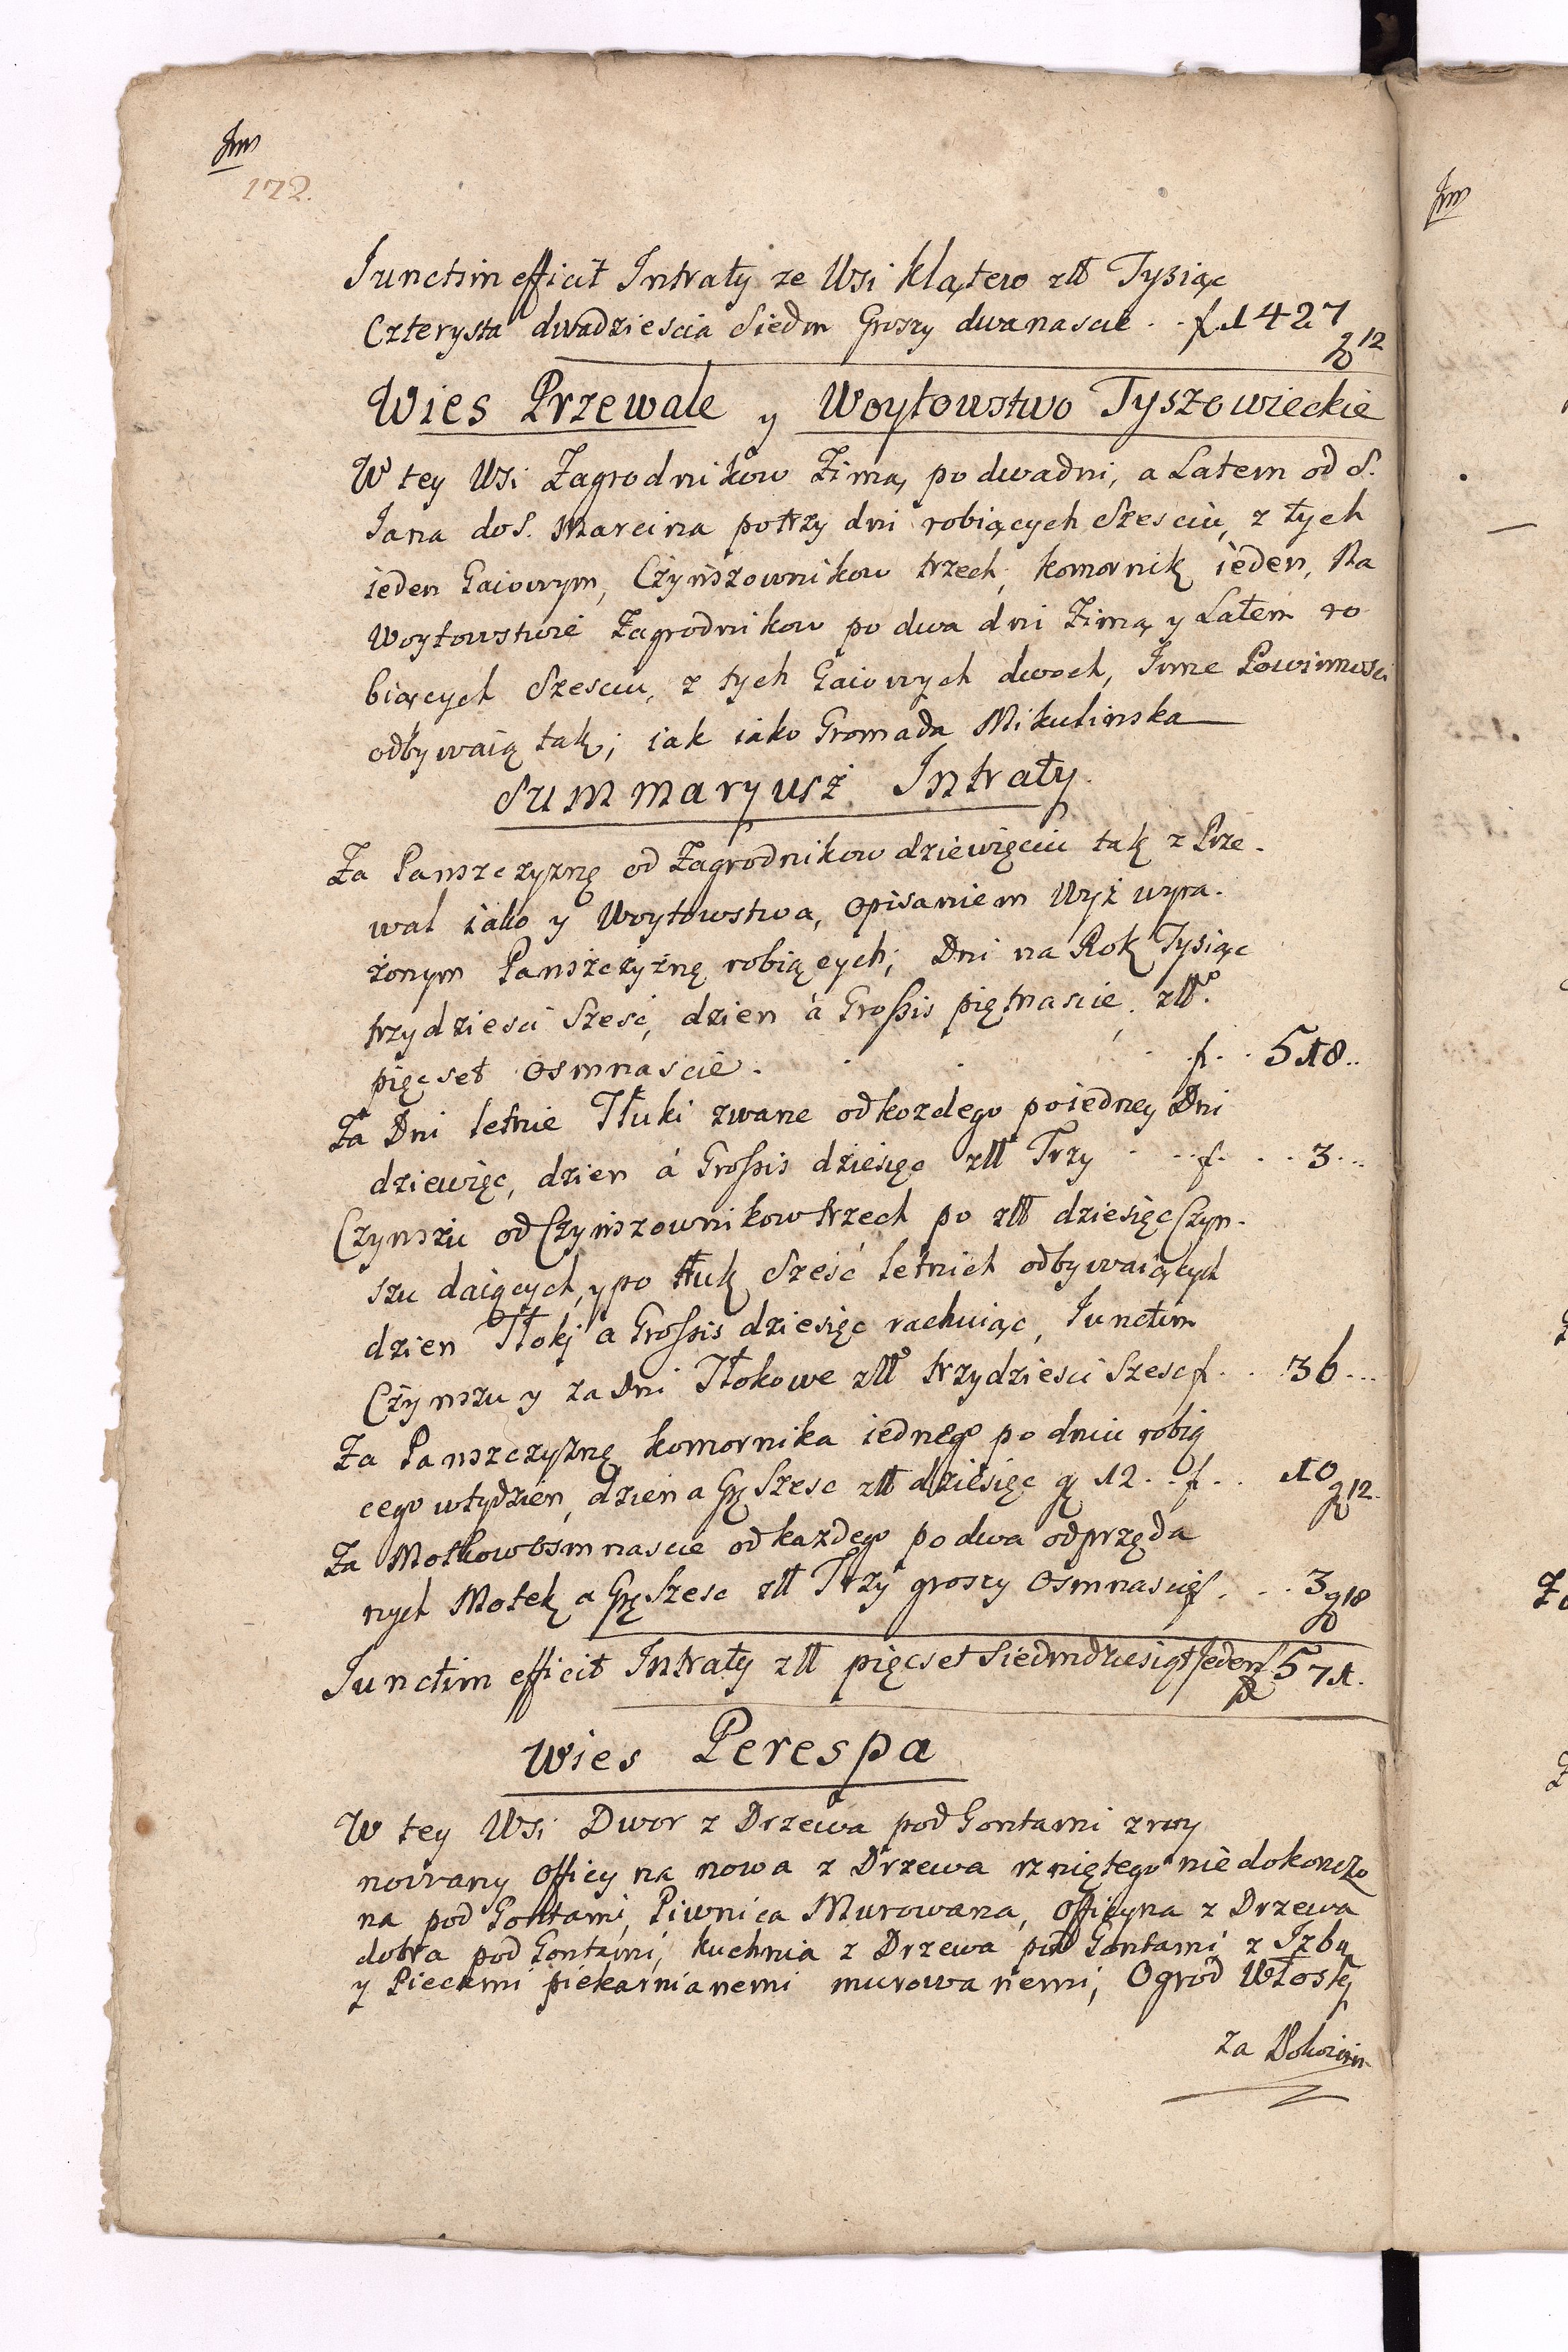 172.
Junctim efficit Intraty ze Wsi Klątew złł Tysiąc
Czterysta dwadziescia Siedm Groszy dwanascie . . f. 1427
g 12
Wies Przewale y Woytowstwo Tyszowieckie
W tey Wsi Zagrodnikow Zimą po dwa dni, a Latem od S.
Jana do S. Marcina po trzy dni robiących Szesciu, z tych
ieden Gaiowym, Czynszownikow trzech, komornik ieden, Na
Woytowstwie Zagrodnikow po dwa dni Zimą y Latem ro
biących Szesciu, z tych Gaiowych dwoch, Inne Powinnosci
odbywaią tak, iak iako Gromada Mikulinska
Summaryusz Intraty.
Za Panszczyznę od Zagrodnikow dziewięciu tak z Prze-
wal iako y Woytowstwa, opisaniem Wyż wyra-
żonym Panszczyznę robiących; Dni na Rok Tysiąc
trzydziesci Szesć, dzien á Grossis piętnascie, złł.
pięcset osmnascie . . . . f. . 518..
Za Dni letnie Tłuki zwane od kozdego po iedney Dni
dziewięc, dzien á Grossis dziesięc złł Trzy . . . f. . . 3...
Czynszu od Czynszownikow trzech po złł dziesięc Czyn-
szu daiących, y po tłuk Szesć letnich odbywaiących
dzien Tłoki a Grossis dziesięc rachuiąc, Junctim
Czynszu y za dni Tłokowe złł trzydziesci Szesc f. . 36...
Za Panszczyznę komornika iednego po dniu robią
cego w tydzien, dzien a gr Szesc złł dziesięc gr 12 . . f. . 10
g 12.
Za Motkow osmnascie od kazdego po dwa odprzęda
nych Motek a gr Szesc złł Trzy groszy Osmnascie f. . . 3
g 18
Junctim efficit Intraty złł pięcset Siedmdziesiąt Jeden f 571.
Wies Perespa
W tey Wsi Dwor z Drzewa pod Gontami zruy
nowany Officyna nowa z Drzewa rzniętego niedokonczo
na pod Gontami, Piwnica Murowana, Officyna z Drzewa
dobra pod Gontami, kuchnia z Drzewa pod Gontami z Izbą
y Piecami piekarnianemi murowanemi, Ogród Włoski
za